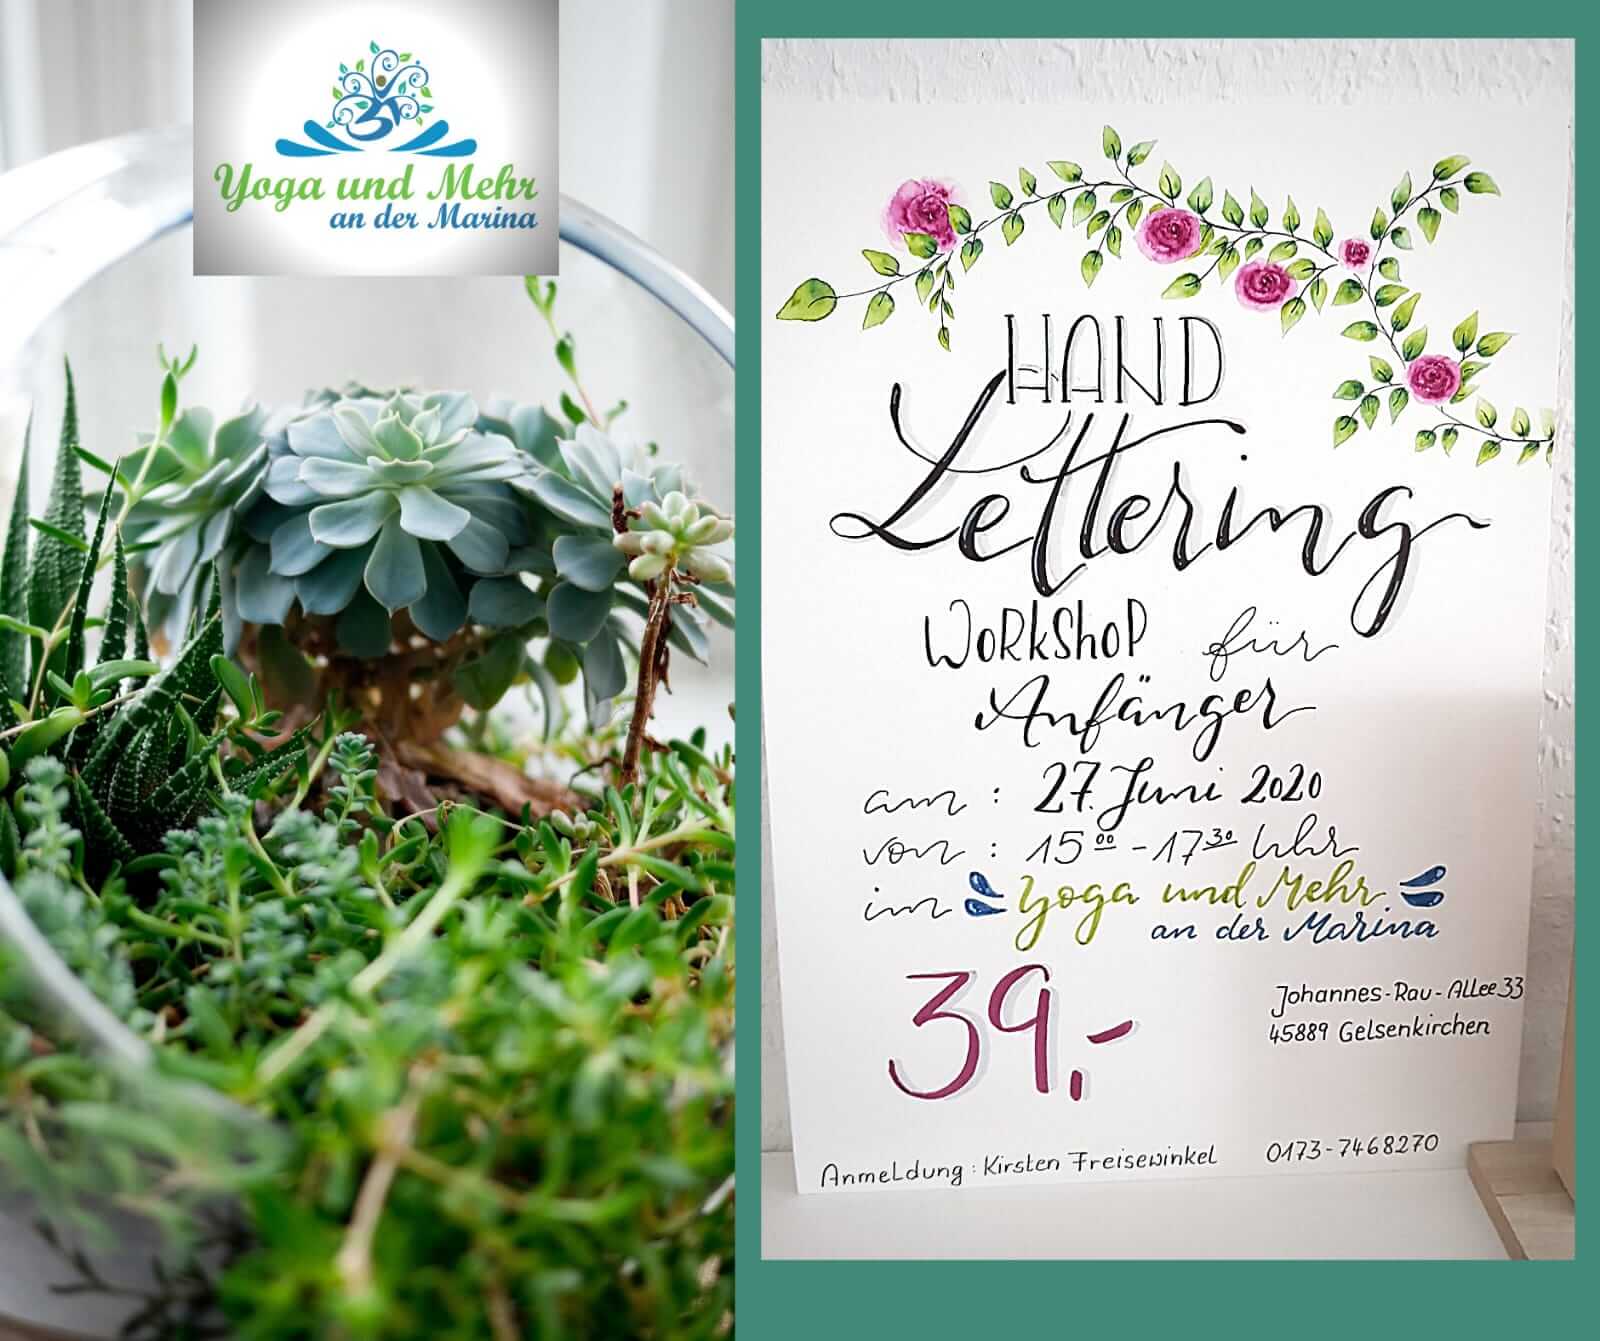 Yoga und Mehr
an der Marina
HAND
Lettering
Workshop für
Anfänger
am : 27. Juni 2020
von : 15⁰⁰ - 17³⁰ Uhr
im Yoga und Mehr
an der Marina
39,-
Johannes-Rau-Allee 33
45889 Gelsenkirchen
Anmeldung : Kirsten Freisewinkel 0173-7468270